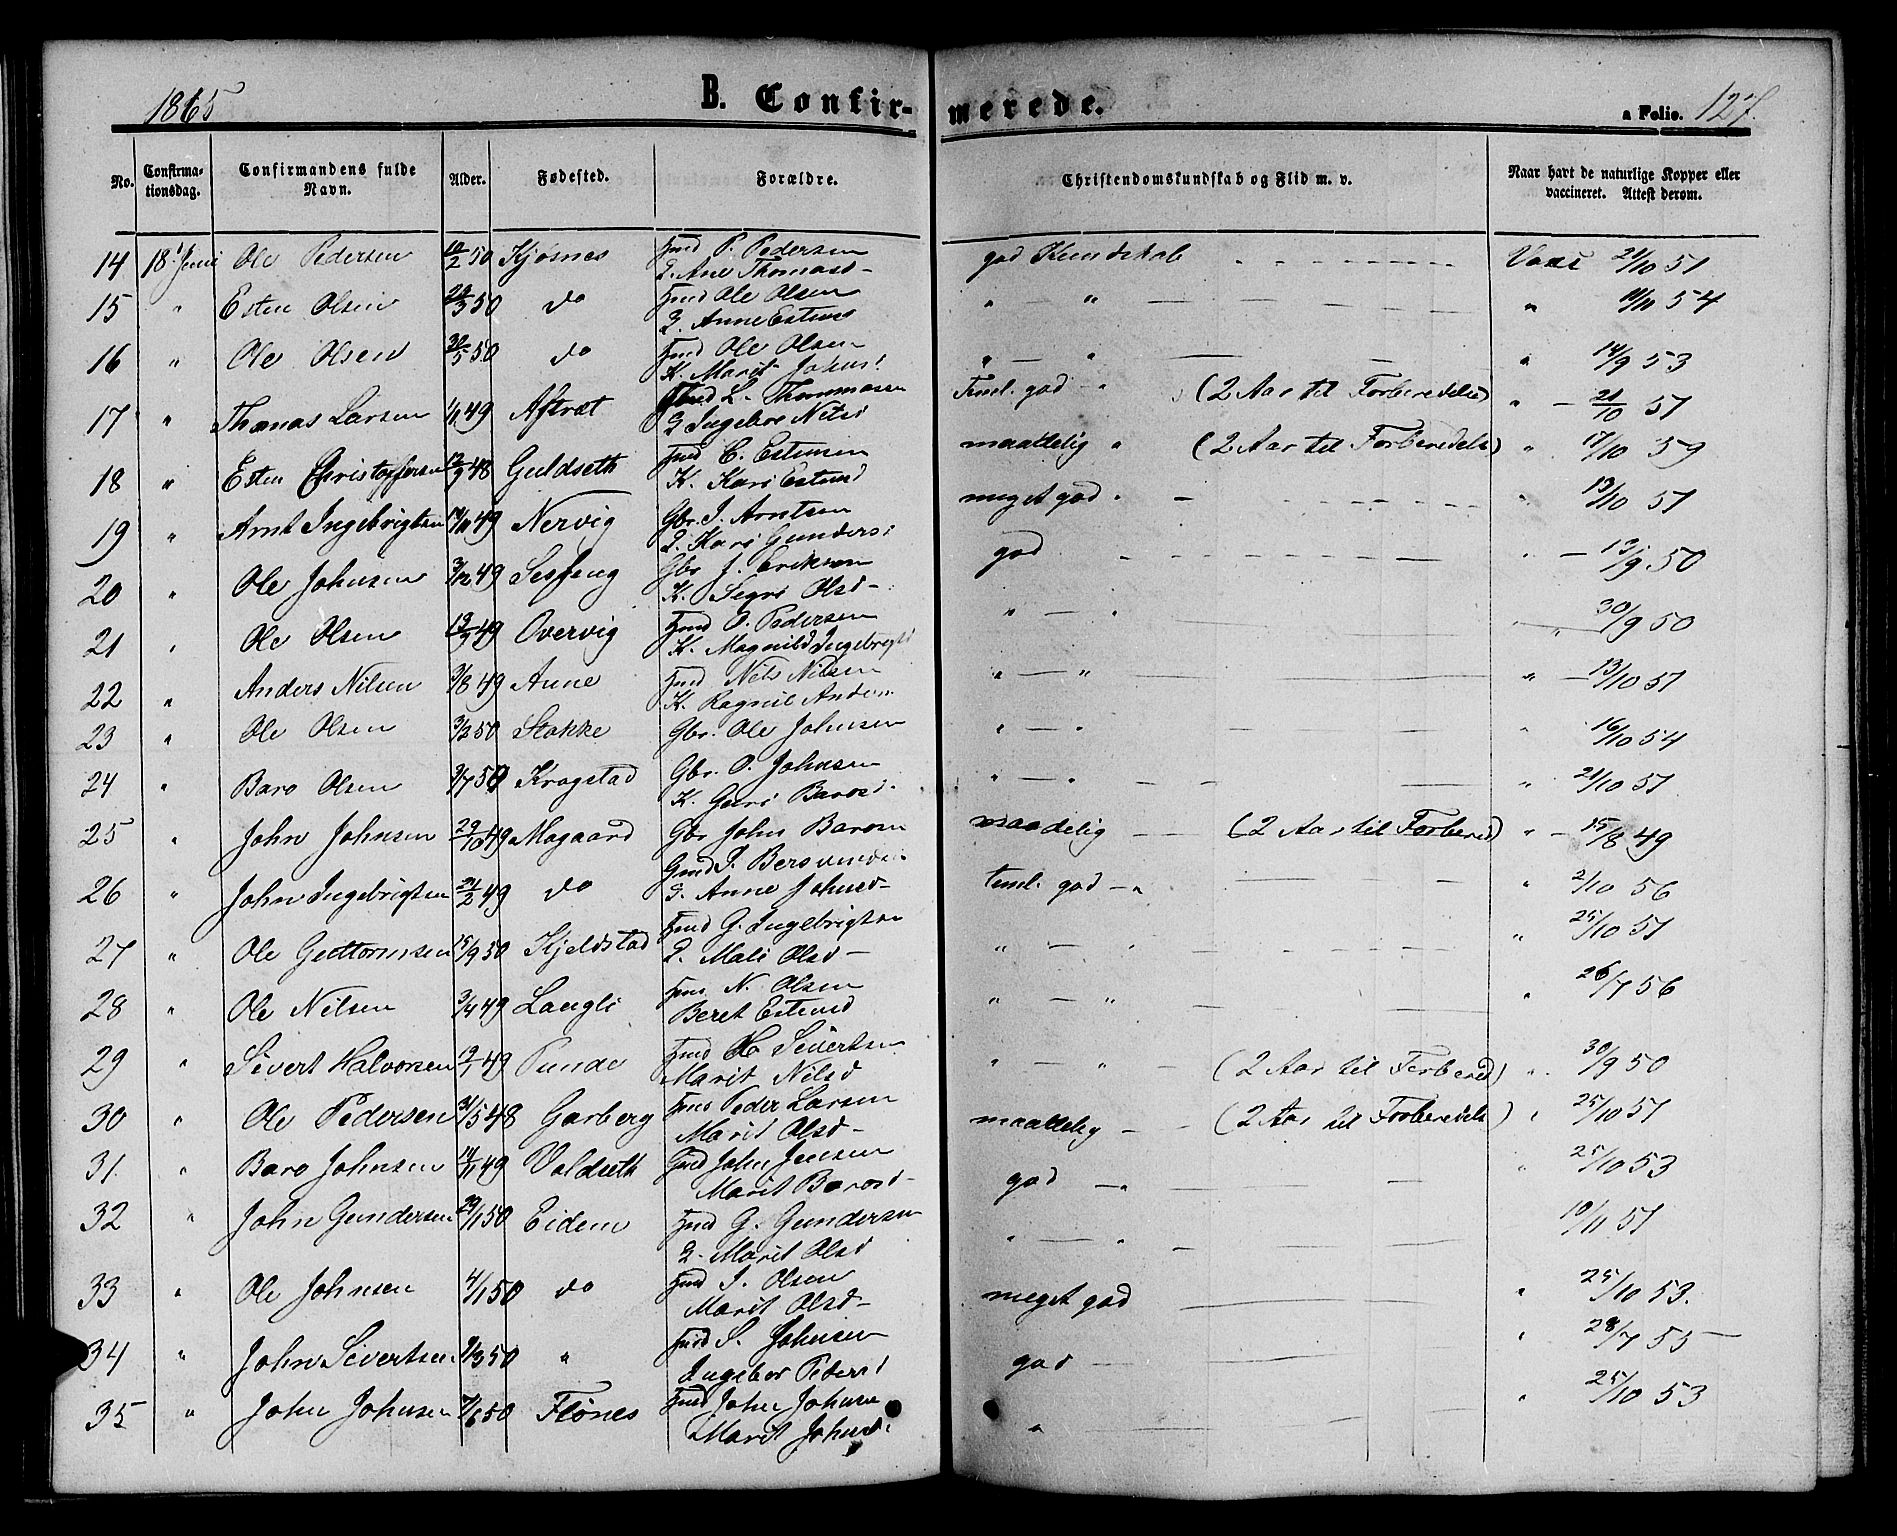 1865
B. Confir-merede.
a Folio. 127.
No. Confirma-tionsdag. Confirmandens fulde Navn. Alder. Fødested. Forældre. Christendomskundskab og Flid m. v. Naar havt de naturlige Kopper eller vaccineret. Attest derom.
14 18 Juni Ole Pedersen 50 Kjøsnes P. Pedersen Ane Thomasd- god Kundskab Vacc 21/10 51
15 " Esten Olsen 50 do Ole Olsen Anne Estens " — " " 54
16 " Ole Olsen 50 do Ole Olsen K. Marit " — " " 14/9 53
17 " Thomas Larsen 49 Aftret L. Thommasen Ingebor Nelsd Teml. god " (2 Aar til Forberedelse) " 21/10 51
18 " Esten Christopfersen 12/9 48 Guldseth C. Estensen K. Kari Estensd maattelig " (2 Aar til Forberedelse) " 17/10 59
19 " Arnt Ingebrigtsen 49 Nervig Gbr. I. Arntsen Kari Gunders: meget god " 13/10 51
20 " Ole Johnsen 3/12 49 Gbr J. Eriksen K. Segri Olsd- god " 13/9 50
21 " Ole Olsen 49 Overvig O. Pedersen K. Magnild Ingebrigts " — " " 30/9 50
22 " Anders Nilsen 3/8 49 Aune Nels Nilsen K. Ragnil " — " " 13/10 51
23 " Ole Olsen 3/2 50 Stokke Gbr. Ole Johnsen " — " " 16/10 54
24 " Baro Olsen 50 Kragstad Gbr. O. Johnsen K. Guri Barosd. " — " " 21/10 51
25 " John Johnsen 29/10 49 Mogaard Gbr John Barosn maadelig (2 Aar til Forbered) " 15/8 49
26 " John Ingebrigtsen 49 do I. Anne Johnsd- teml. god " " 2/10 56
27 " Ole Guttormsen 15/9 50 Kjeldstad G. Ingebrigtsn Mali Olsd- " — " " 25/10 51
28 " Ole Nilsen 3/4 49 Langli N. Olsen Beret Estensd " — " " 26/7 56
29 " Sivert Halvorsen 49 H Sivertsen Marit Nilsd " — " (2 Aar til Forbered) " 30/9 50
30 " Ole Pedersen 31/5 48 Garberg Peder Larsen Marit Olsd- maattelig (2 Aar til Forberedels) " 25/10 51
31. " Baro Johnsen 14/11 49 Valdseth John Jensen Marit Barosd- god " " 25/10 53
32 " John Gundersen 29/1 50 Eidem G. Gundersen Marit Olsd " — " 10/11 51
33 " Ole Johnsen 4/1 50 do I. Olsen Marit Olsd- meget god " 25/10 53.
34 " John Sivertsen 50 " S. Johnsen Ingebor Pedersd god " 28/7 55
35 " John Johnsen 50 Flønes John Johnsen Marit Johnsd: " " 25/10 53